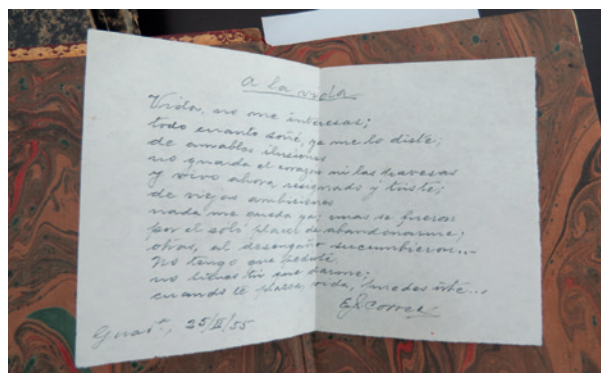 A la vida
Vida, no me interesas;
todo cuanto soñé, ya me lo diste;
de amables ilusiones
no guarda el corazón ni las pavesas
y vivo ahora resignado y triste;
de viejas ambiciones
nada me queda ya; unas se fueron
por el sólo placer de abandonarme;
otras, al desengaño sucumbieron...
No tengo que pedirte,
no tienes tú que darme;
cuando te plazca, vida, puedes irte...
Correa
25/II/55